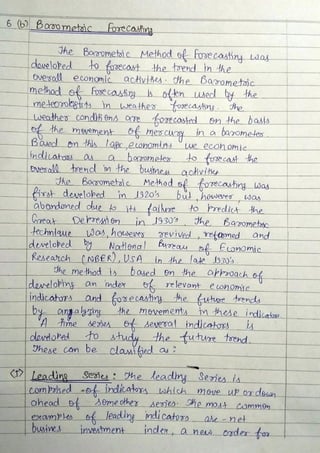 6 (b) Barometric Forecasting
The Barometric Method of Forecasting was
developed to forecast the trend in the
overall economic activities. The Barometric
method of Forecasting is often used by the
meteorologists in weather forecasting. The
weather conditions are forecasted on the basis
of the movement of mercury in a barometer.
Based on this logic, economists use economic
indicators as a barometer to forecast the
overall trend in the business activities
The Barometric Method of forecasting was
first developed in 1920's but, however, was
abandoned due to its failure to predict the
Great Depression in 1930's. The Barometric
technique was, however revived, reformed and
developed by National Bureau of Economic
Research (NBER), USA in the late 1930's
The method is based on the approach of
developing an index of relevant economic
indicators and forecasting the future trends
by analysing the movements in these indicators.
A time series of several indicators is
developed to study the future trend.
These can be classified as :
(1) Leading Series : The leading Series is
comprised of indicators which move up or down
ahead of some other series. The most common
examples of leading indicators are - net
busines investment index, a new order for